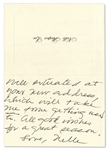 will entreated at
your new address
which will take
me some getting used
to. All good wishes
for a great season.
Love, Nelle